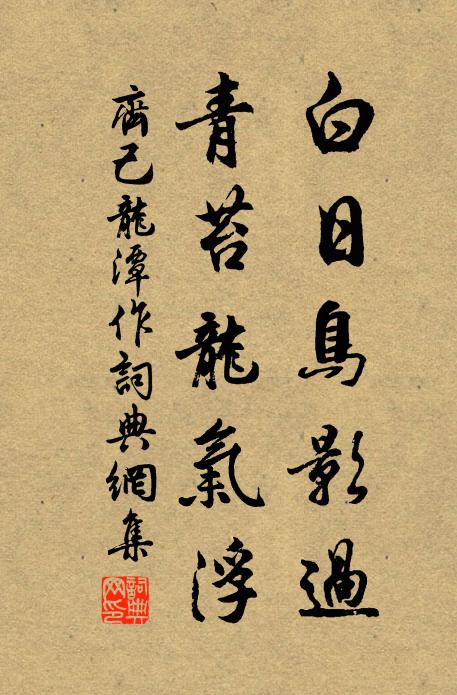 白日鳥影過
青苔龍氣浮
齊己龍潭作詞典網集
詞典網印